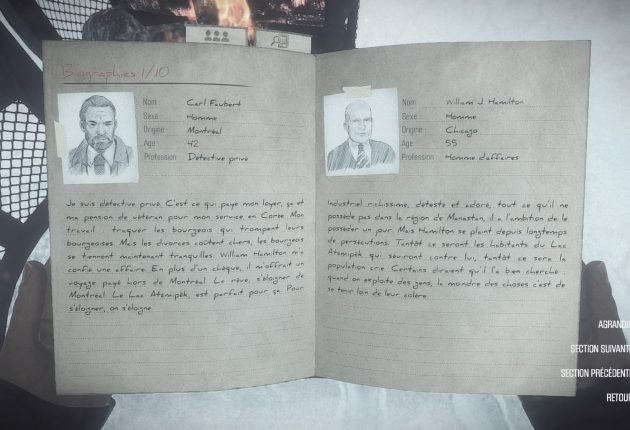 Biographies 1/10
Nom Carl Faubert
Sexe Homme
Origine Montréal
Age 42
Profession Détective privé
Je suis détective privé. C'est ce qui paye mon loyer, ça et
ma pension de vétéran pour mon service en Corée. Mon
travail : traquer les bourgeois qui trompent leurs
bourgeoises. Mais les divorces coûtent chers, les bourgeois
se tiennent maintenant tranquilles. William Hamilton m'a
confié une affaire. En plus d'un chèque, il m'offrait un
voyage payé hors de Montréal. Le rêve, s'éloigner de
Montréal. Le Lac Atamipek, est parfait pour ça. Pour
s'éloigner, on s'éloigne.
Nom William J. Hamilton
Sexe Homme
Origine Chicago
Age 55
Profession Homme d'affaires
Industriel richissime, détesté et adoré, tout ce qu'il ne
possède pas dans la région de Manastan, il a l'ambition de le
posséder un jour. Mais Hamilton se plaint depuis longtemps
de persécutions. Tantôt ce seront les habitants du Lac
Atamipek qui seront contre lui, tantôt ce sera la
population crie. Certains diraient qu'il l'a bien cherché :
quand on exploite des gens, la moindre des choses c'est de
se tenir loin de leur colère.
AGRANDIR
SECTION SUIVANTE
SECTION PRÉCÉDENTE
RETOUR